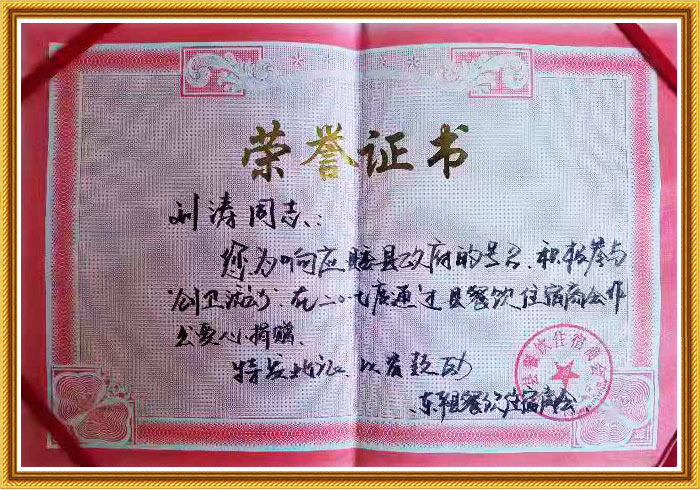 荣誉证书
刘涛同志：
您为响应睢县政府的号召、积极参与
“创卫活动”在二〇一七年度通过县餐饮住宿商会作
出爱心捐赠、
特发此证、以资鼓励
县餐饮住宿商会
县餐饮住宿商会